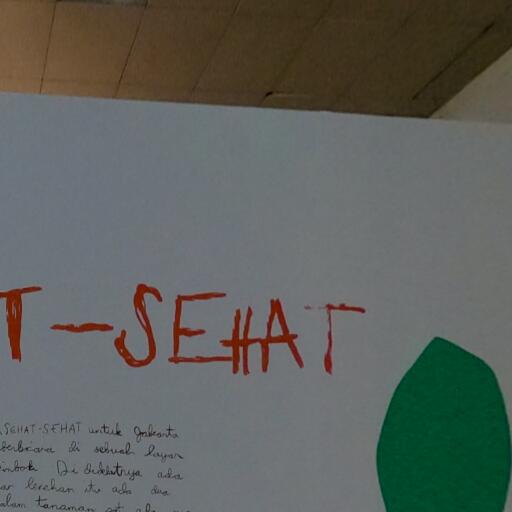 T-SEHAT
SEHAT-SEHAT untuk Jakarta
berbicara di sebuah layar
Di dekatnya ada
itu ada dua
tanaman